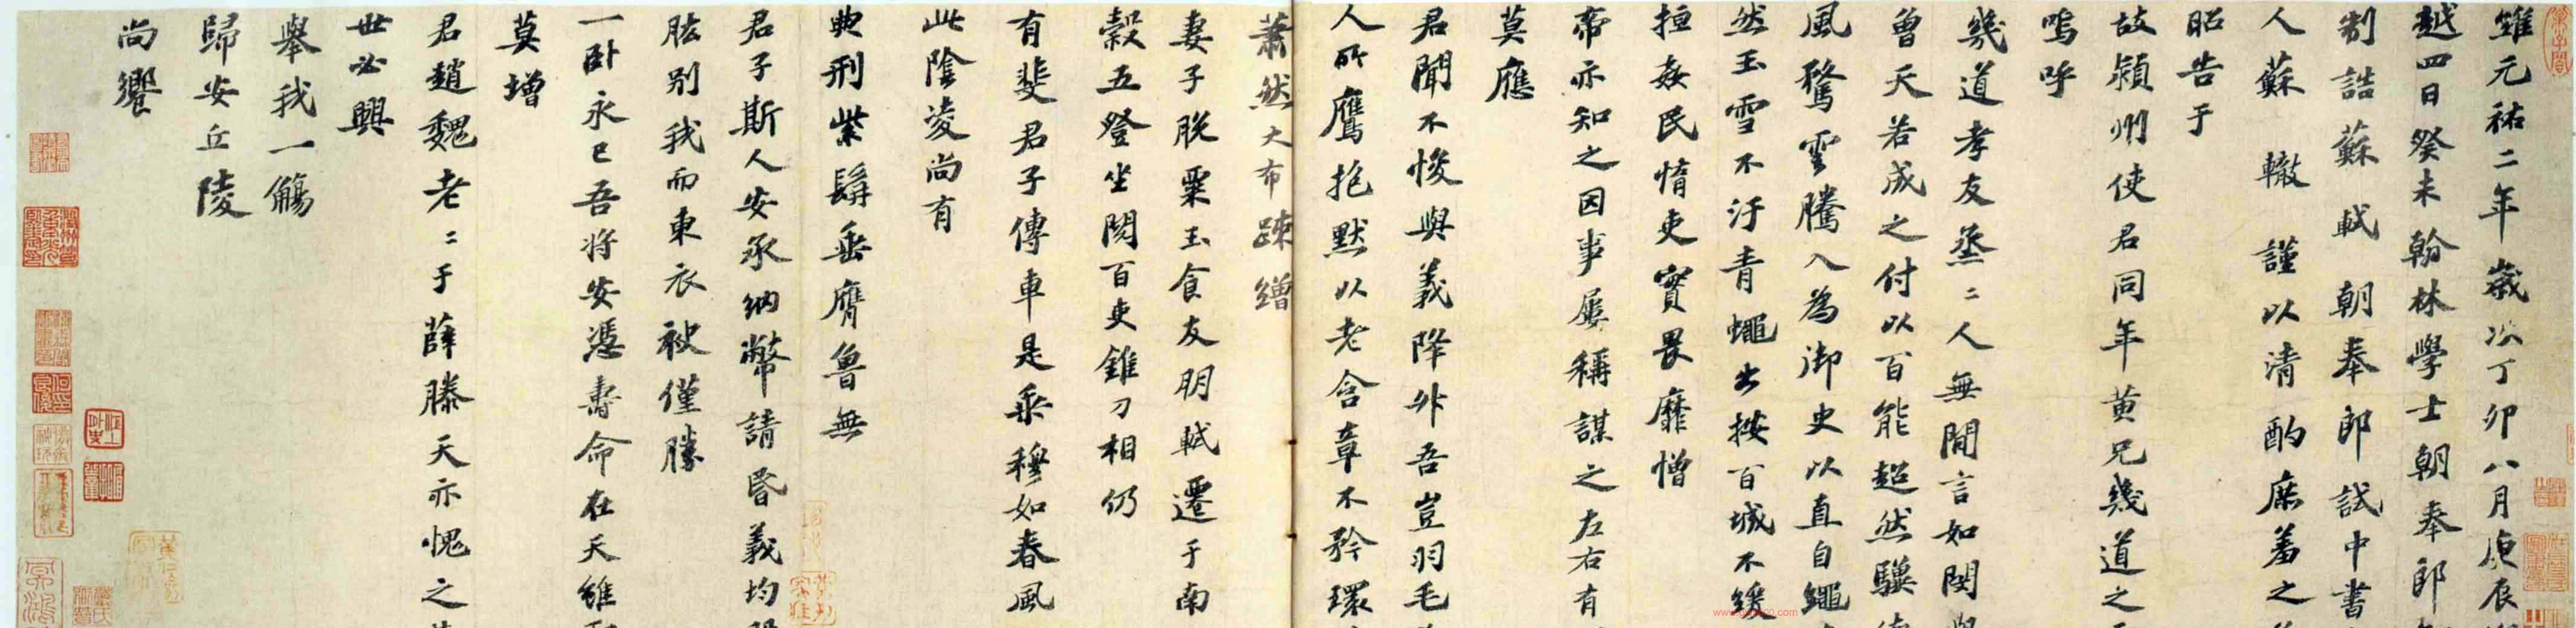 維元祐二年歲次丁卯八月庚辰
越四日癸未翰林學士朝奉郎
制誥蘇軾朝奉郎試中書
人蘇轍謹以清酌庶羞之
昭告于
故潁州使君同年黃兄幾道之
嗚呼
幾道孝友烝〻人無間言如閔
曾天若成之付以百能超然驥
風騖雲騰入為御史以直自繩
然玉雪不汙青蠅出按百城不緩
擅姦民惰吏實畏靡憎
帝亦知之因事屢稱謀之左右有
莫應
君聞不悛與義降升吾豈羽毛
人所鷹抱默以老含章不矜環
蕭然大布疎繒
妻子脫粟玉食友朋軾遷于南
穀五登坐閱百吏錐刀相仍
有斐君子傳車是乘穆如春風
此陰凌尚有
典刑紫髯垂膺魯無
君子斯人安承納幣請昏義均
肱別我而東衣袂僅勝
一臥永已吾將安憑壽命在天雖
莫增
君趙魏老〻于薛滕天亦愧之
世必興
舉我一觴
歸安丘陵
尚饗